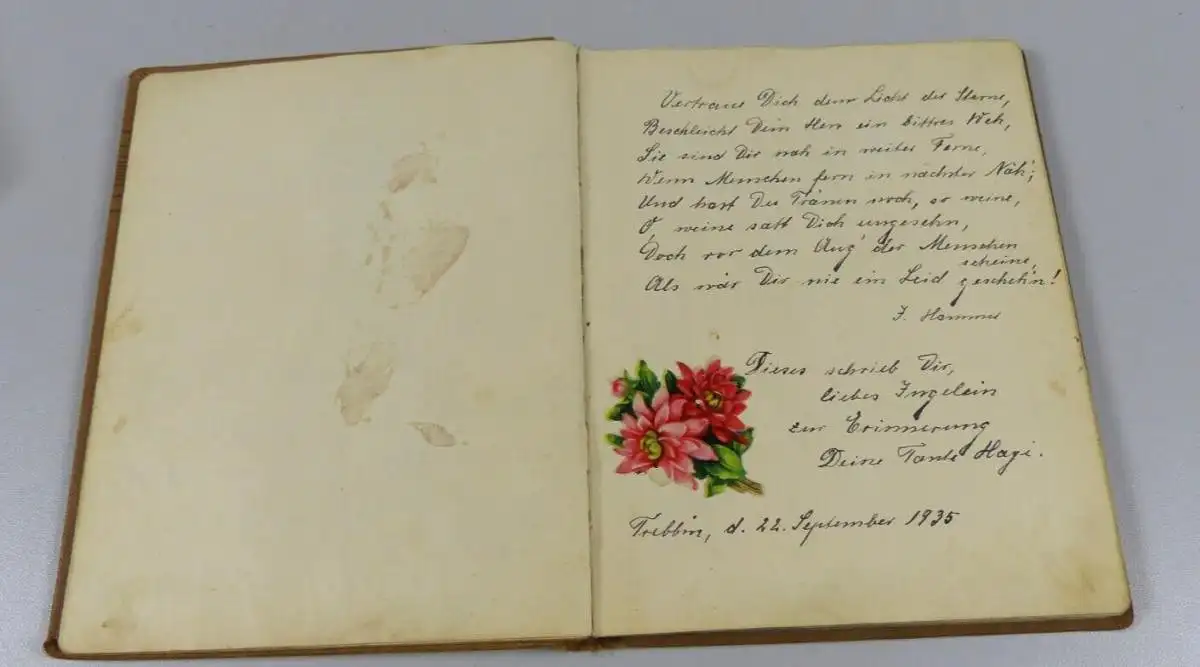 Vertraue Dich dem Licht der Sterne,
Beschleicht Dein Herz ein bittres Weh,
Sie sind Dir nah in weiter Ferne,
Wenn Menschen fern in nächster Näh';
Und hast Du Tränen noch, so weine,
O weine satt Dich ungesehn,
Doch vor dem Aug' der Menschen
scheine,
Als wär Dir nie ein Leid gescheh'n!
J. Hammer
Dieses schrieb Dir,
liebes Ingelein
zur Erinnerung
Deine Tante Hagi.
Trebbin, d. 22. September 1935